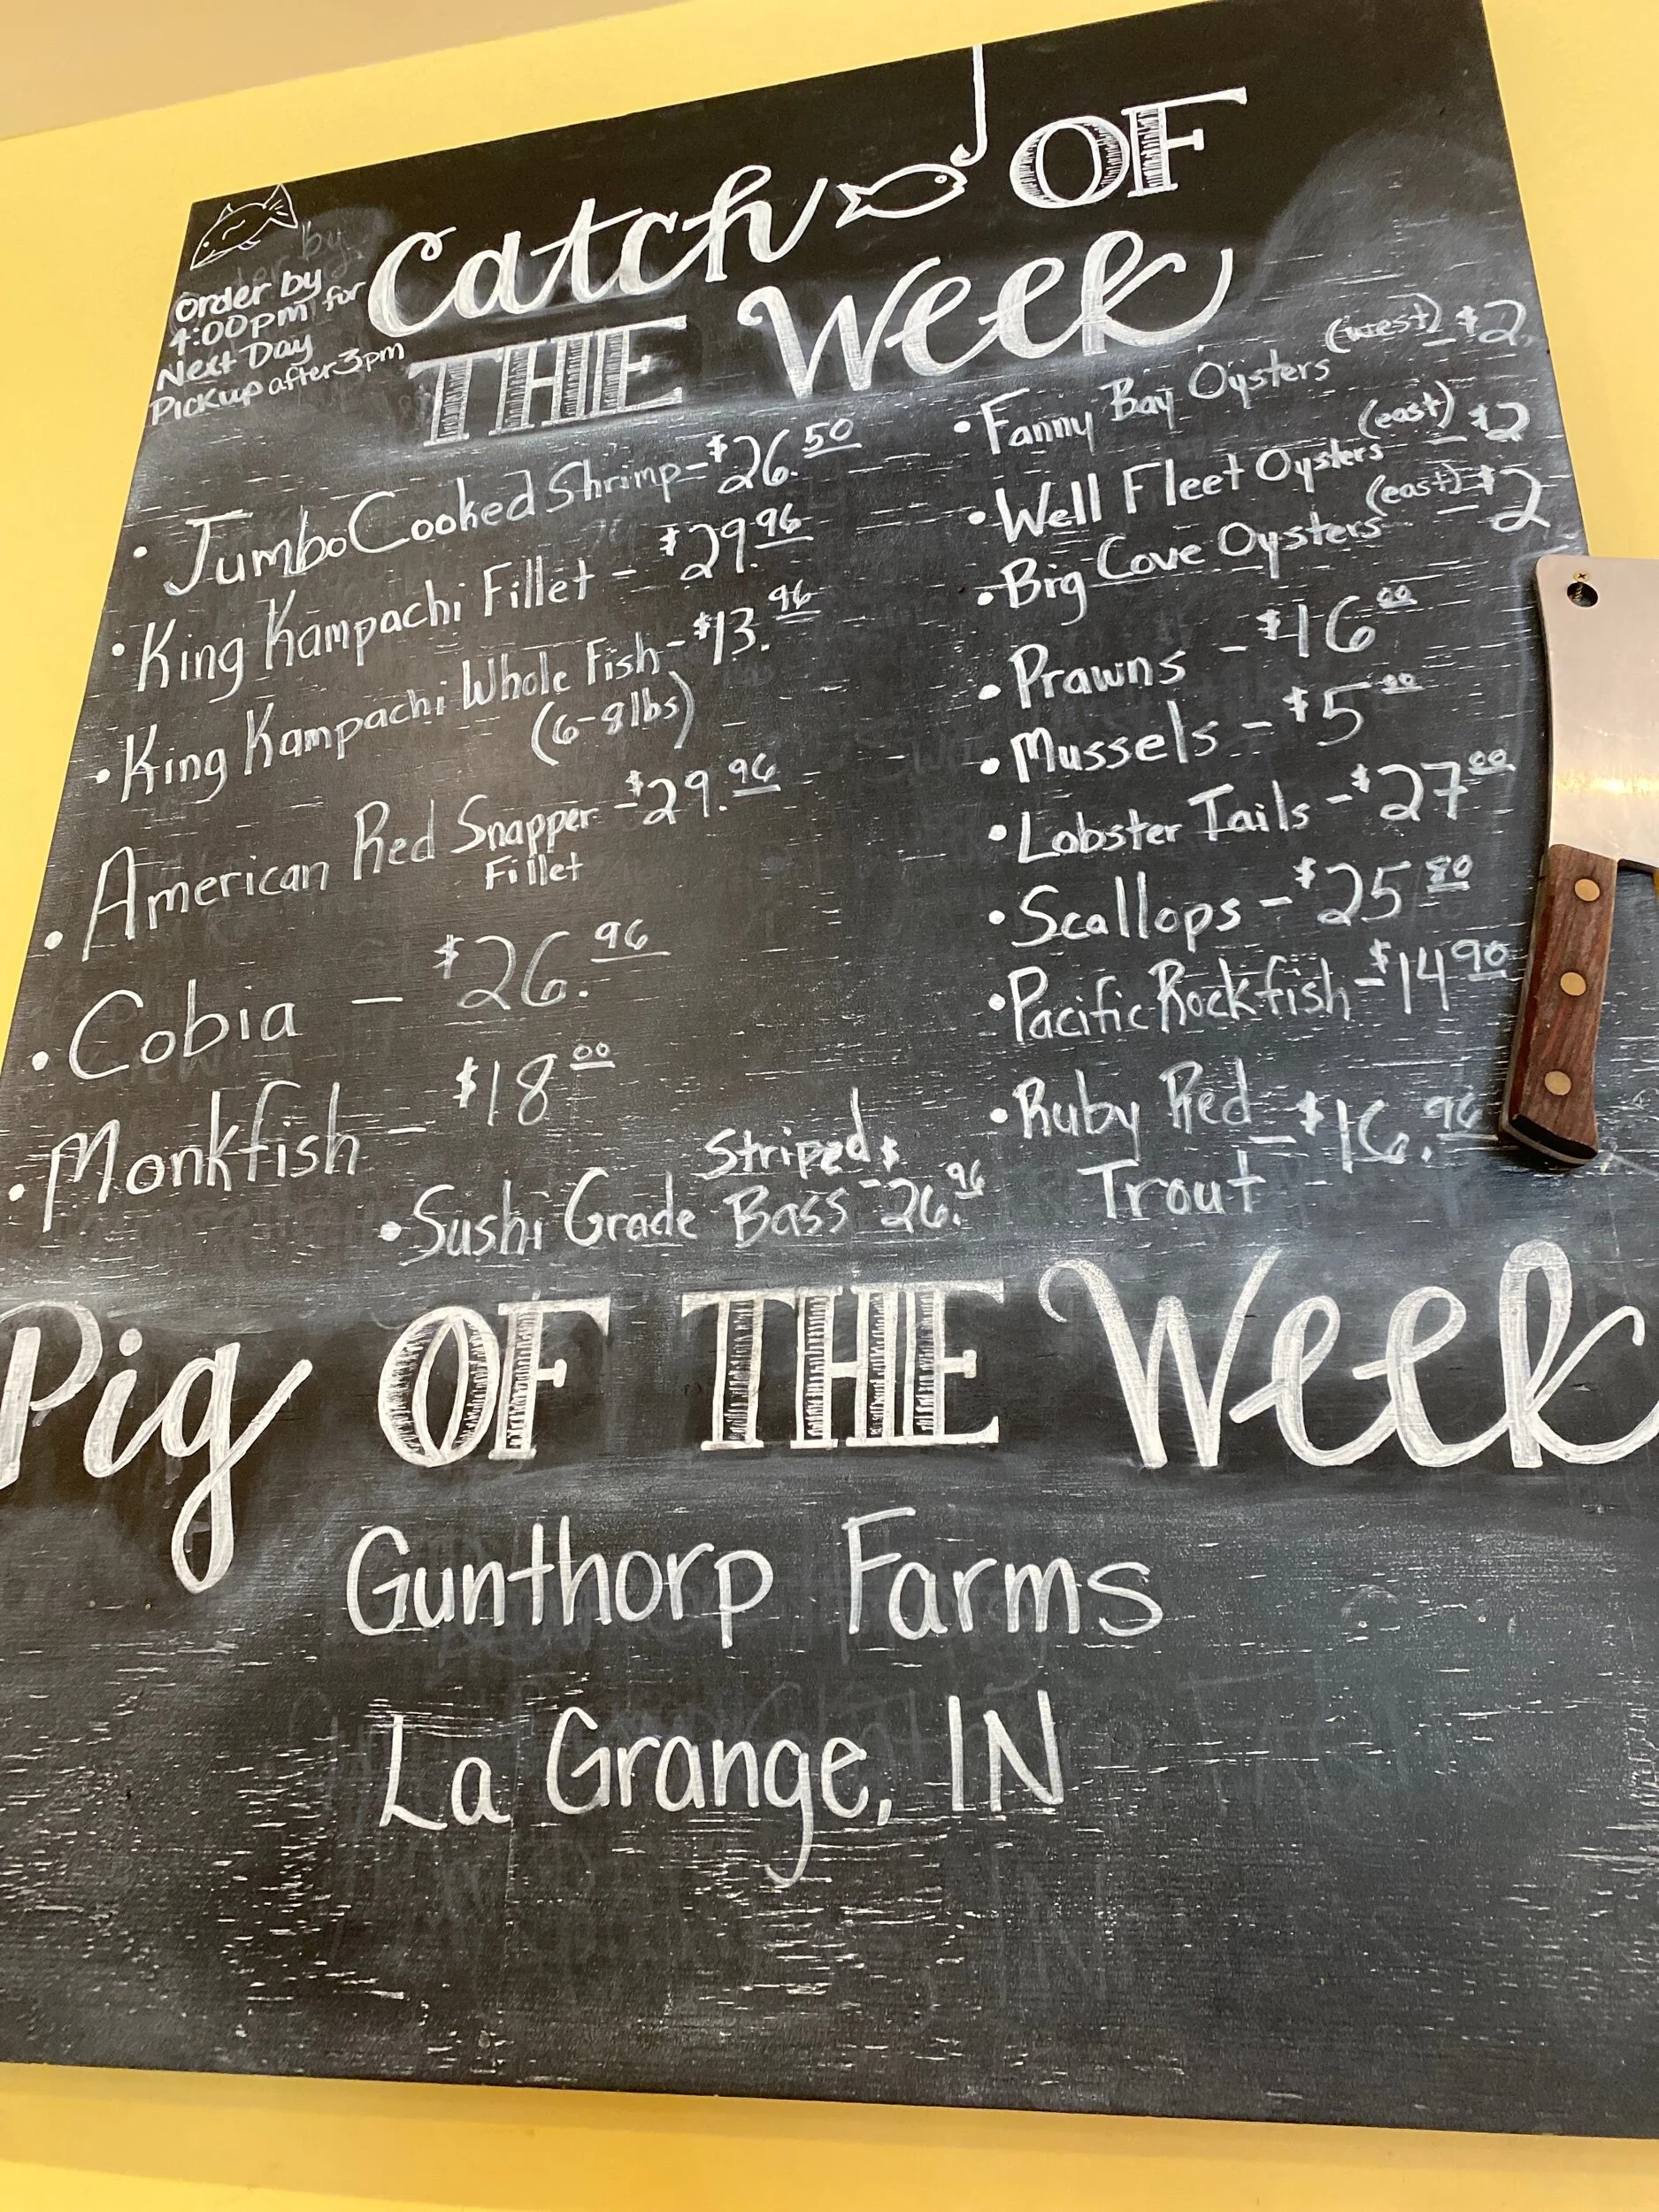 Catch OF
THE Week
Order by
4:00pm for
Next Day
Pickup after 3pm
• Jumbo Cooked Shrimp - $26.50
• King Kampachi Fillet - $29.96
• King Kampachi Whole Fish - $13.96
(6-8lbs)
• American Red Snapper - $29.96
Fillet
• Cobia - $26.96
• Monkfish - $18.00
• Sushi Grade Striped Bass - $26.96
• Fanny Bay Oysters (west) - $2
• Well Fleet Oysters (east) - $2
• Big Cove Oysters (east) - $2
• Prawns - $16.00
• Mussels - $5.00
• Lobster Tails - $27.00
• Scallops - $25.80
• Pacific Rockfish - $14.90
• Ruby Red - $16.96
Trout
Pig OF THE Week
Gunthorp Farms
La Grange, IN